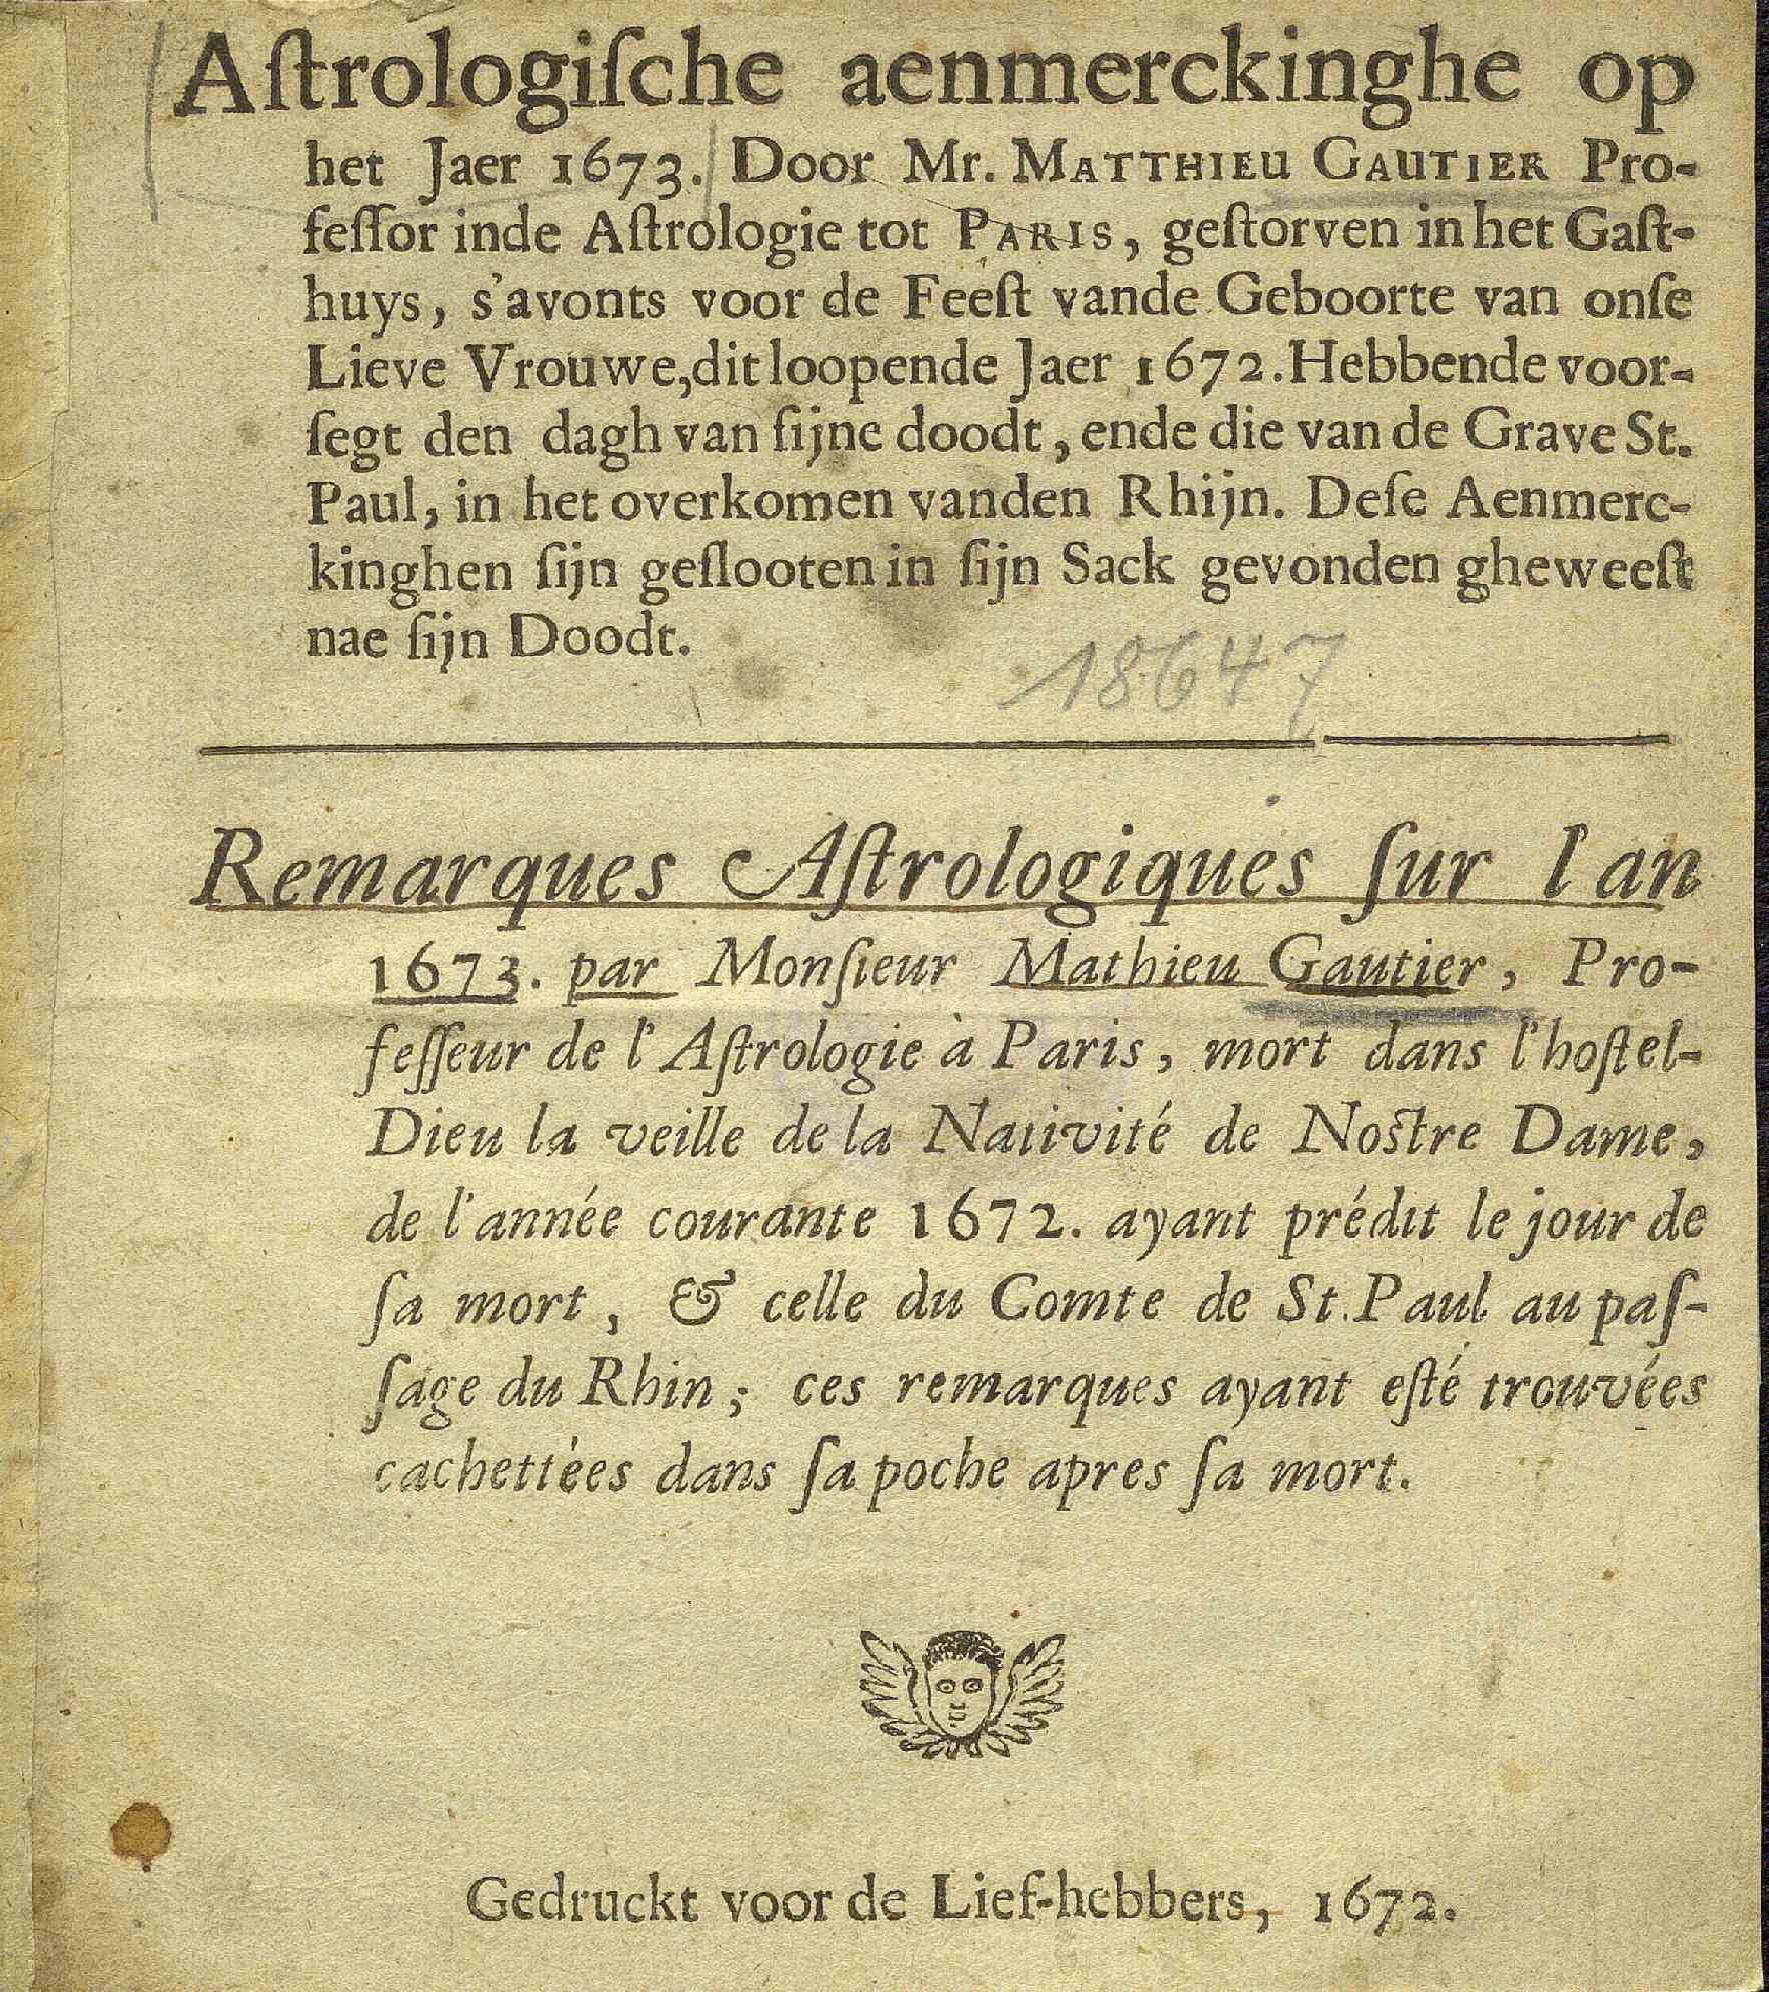 Aſtrologiſche aenmerckinghe op
het Jaer 1673. Door Mr. MATTHIEU GAUTIER Pro-
feſſor inde Aſtrologie tot PARIS, geſtorven in het Gaſt-
huys, s'avonts voor de Feeſt vande Geboorte van onſe
Lieve Vrouwe, dit loopende Jaer 1672. Hebbende voor-
ſegt den dagh van ſijne doodt, ende die van de Grave St.
Paul, in het overkomen vanden Rhijn. Deſe Aenmerc-
kinghen ſijn geſlooten in ſijn Sack gevonden gheweeſt
nae ſijn Doodt.
18647
Remarques Aſtrologiques ſur l'an
1673. par Monſieur Mathieu Gautier, Pro-
feſſeur de l'Aſtrologie à Paris, mort dans l'hoſtel-
Dieu la veille de la Nativité de Noſtre Dame,
de l'année courante 1672. ayant prédit le jour de
ſa mort, & celle du Comte de St. Paul au paſ-
ſage du Rhin; ces remarques ayant eſté trouvées
cachettées dans ſa poche apres ſa mort.
Gedruckt voor de Lief-hebbers, 1672.